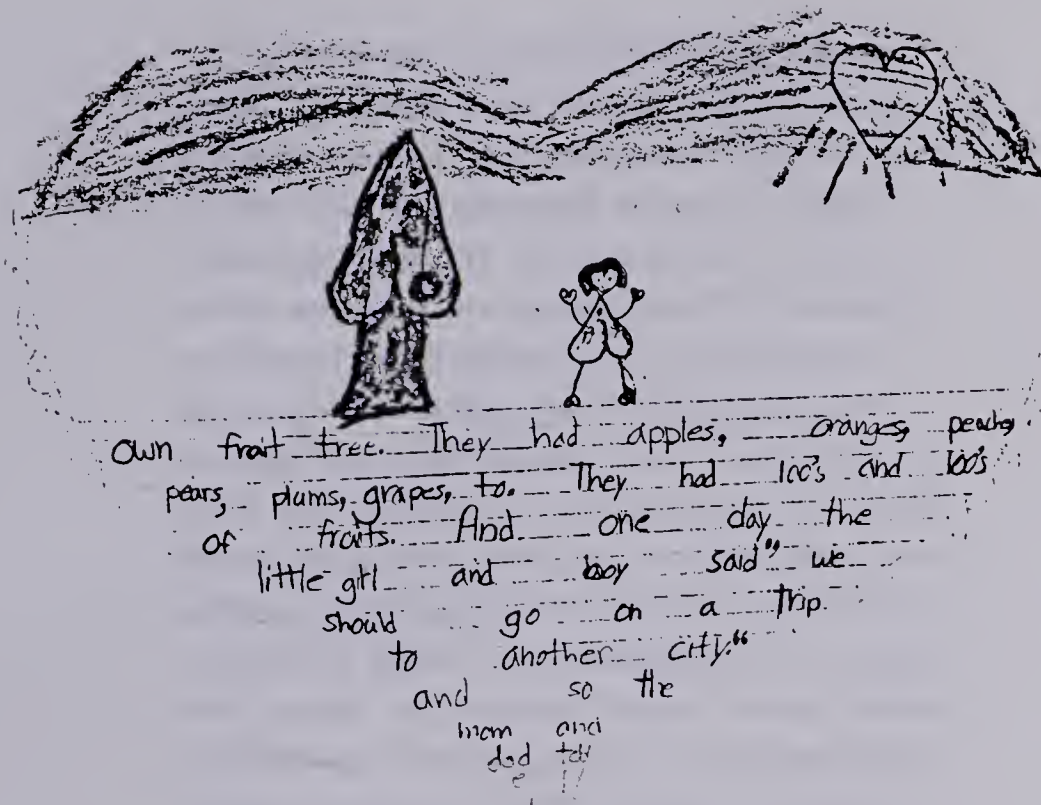 own frait tree. They had apples, oranges, peachs,
pears, plums, grapes, to. They had 100's and 100's
of fraits. And one day the
little girl and boy said" we
should go on a trip
to another city."
and so the
mom and
dad